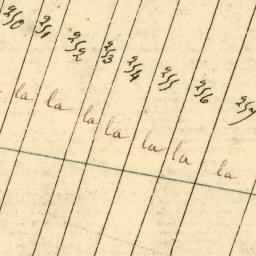 250 251 252 253 254 255 256 257
la la la la la la la